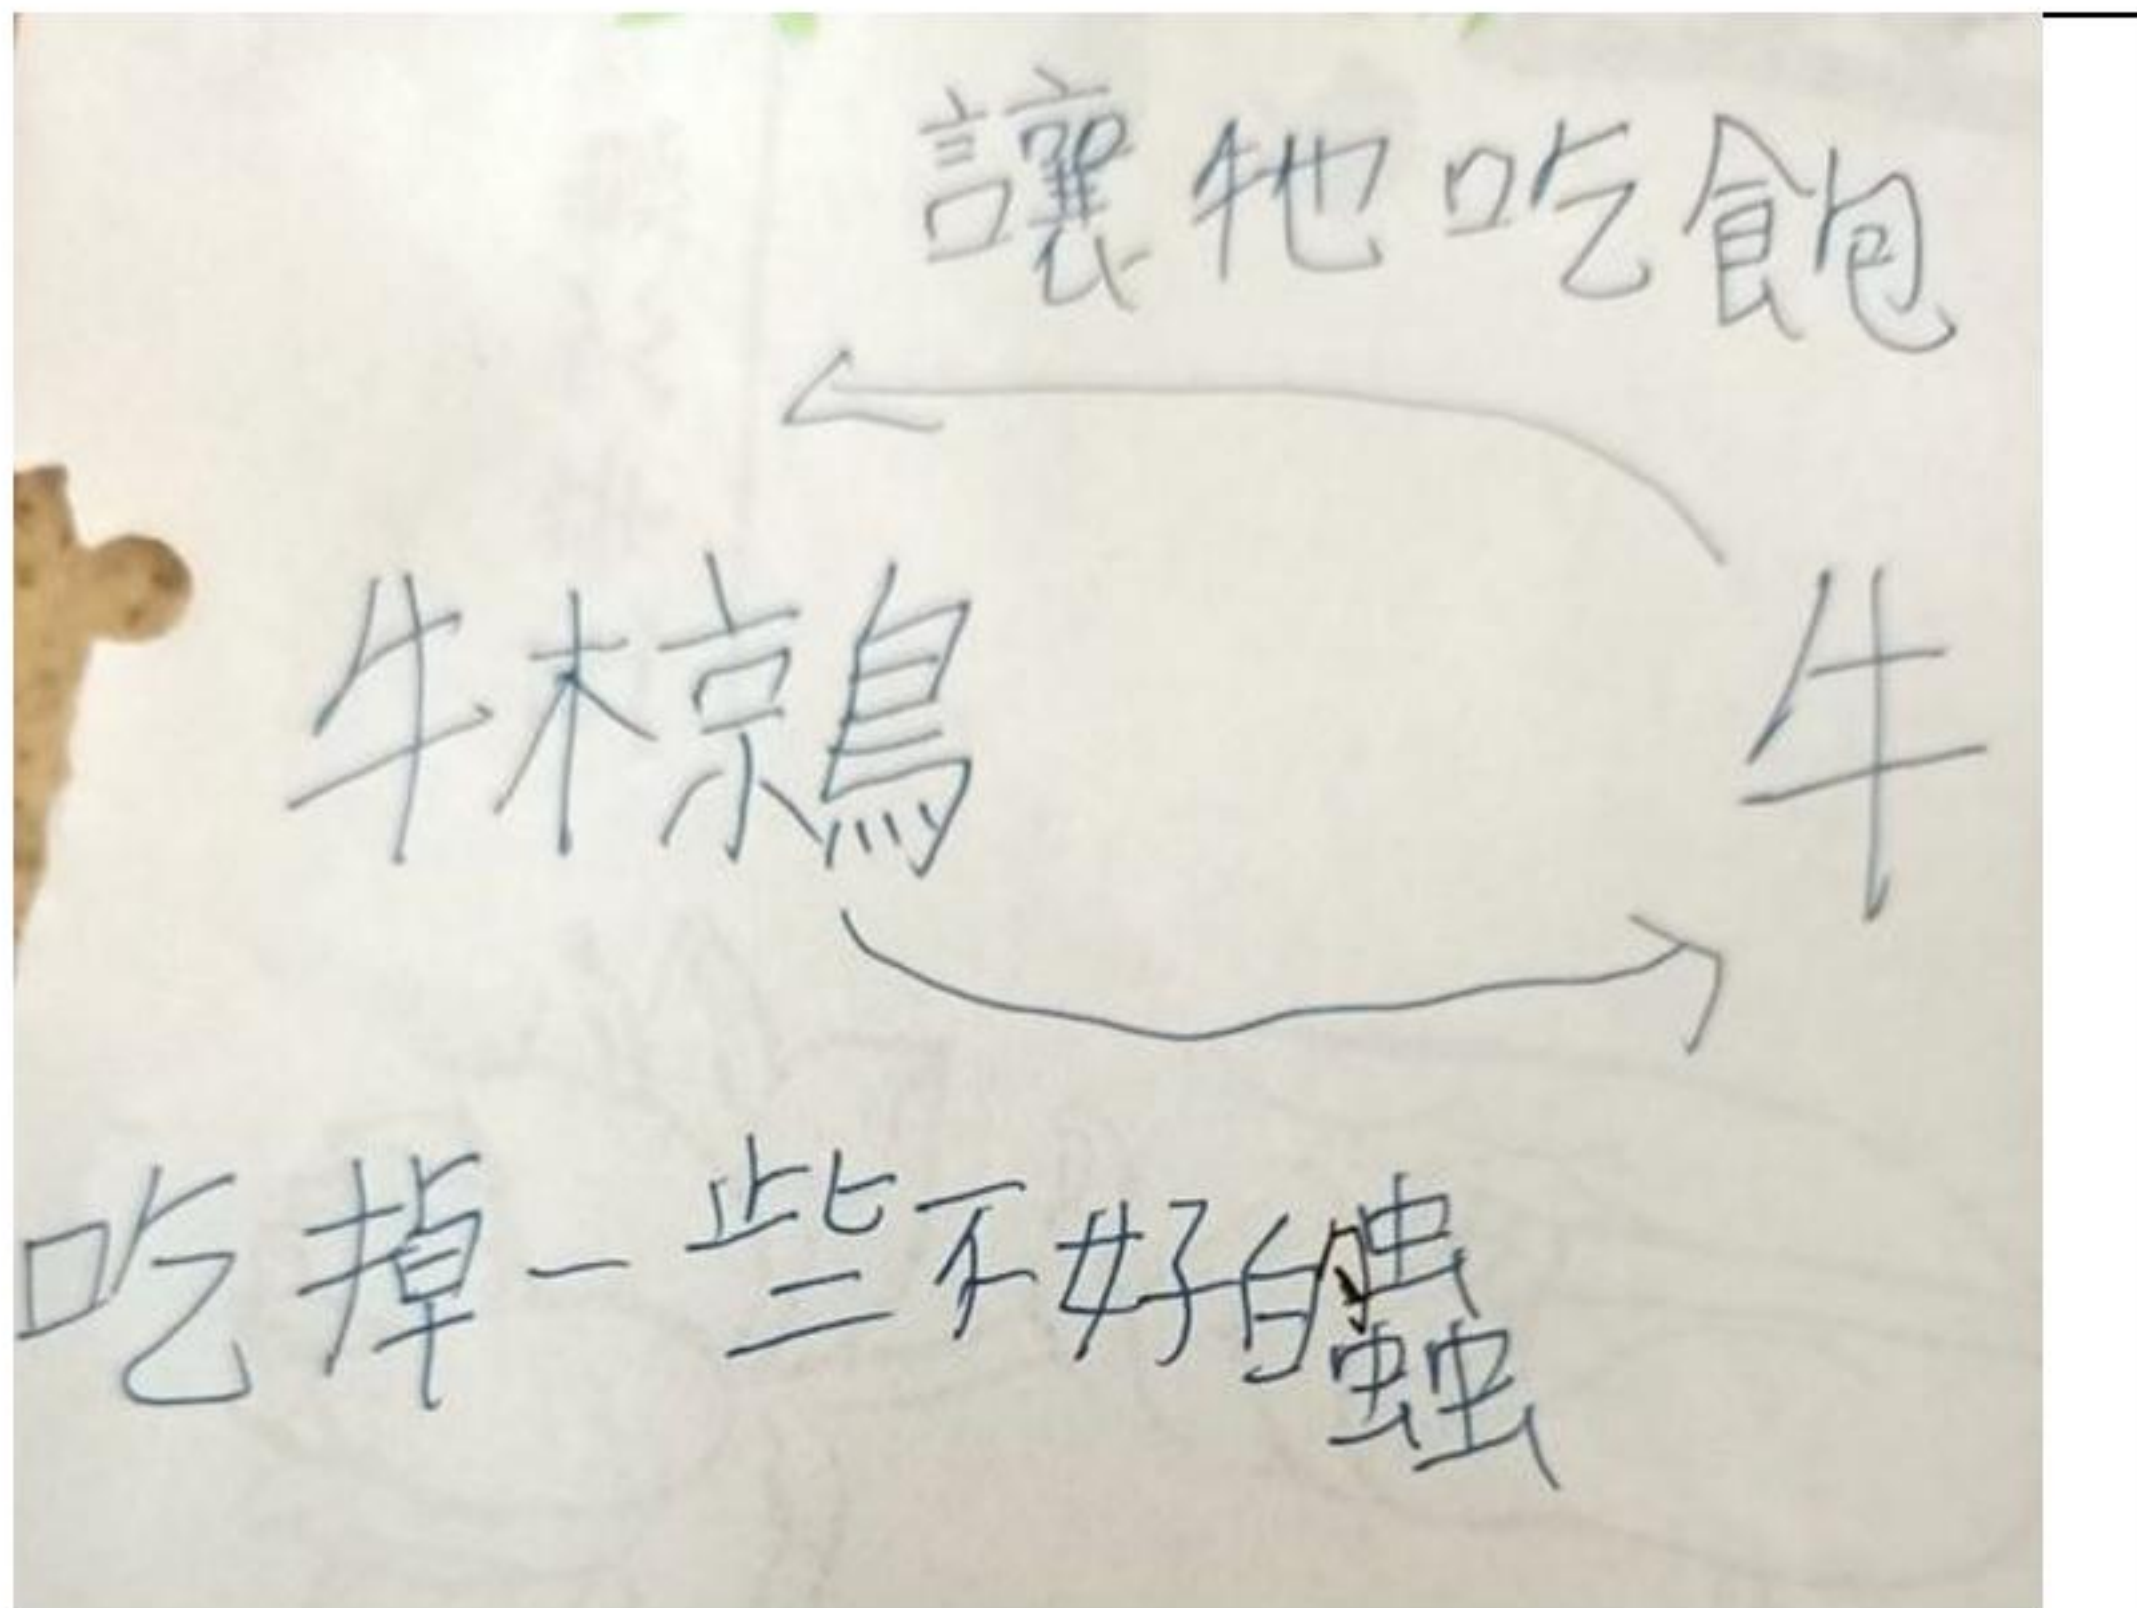 讓牠吃飽
牛椋鳥 牛
吃掉一些不好的蟲